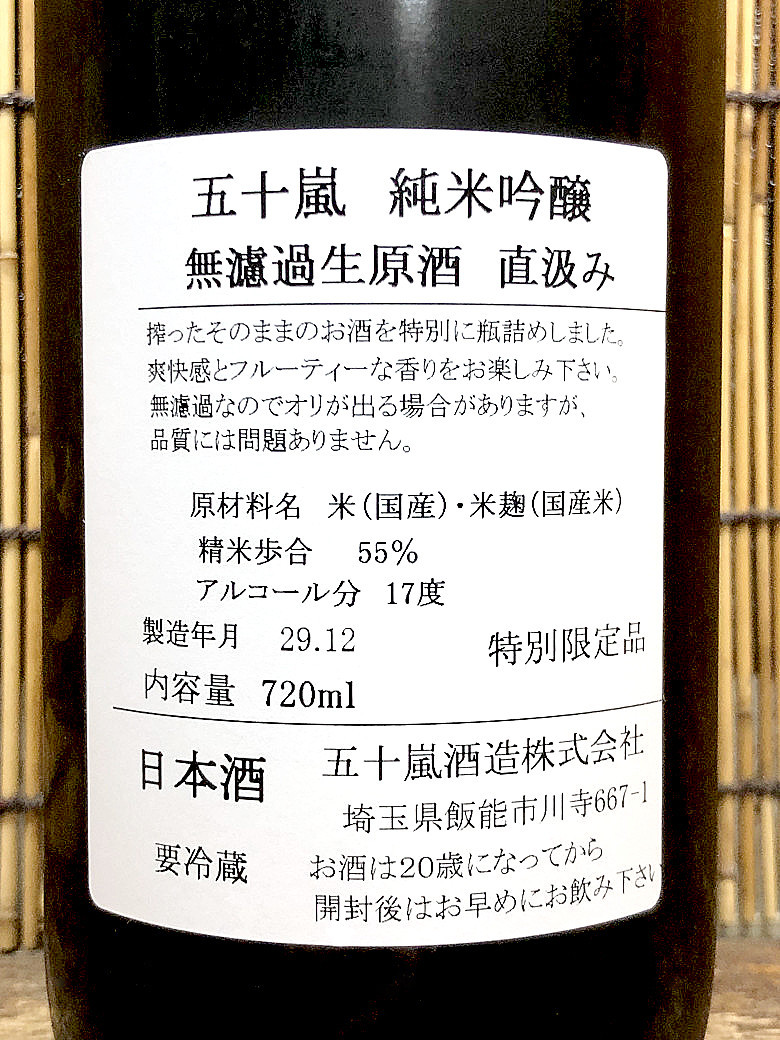 五十嵐 純米吟醸
無濾過生原酒 直汲み
搾ったそのままのお酒を特別に瓶詰めしました。
爽快感とフルーティーな香りをお楽しみ下さい。
無濾過なのでオリが出る場合がありますが、
品質には問題ありません。
原材料名 米(国産)・米麹(国産米)
精米歩合 55%
アルコール分 17度
製造年月 29.12
特別限定品
内容量 720ml
日本酒 五十嵐酒造株式会社
埼玉県飯能市川寺667-1
要冷蔵 お酒は20歳になってから
開封後はお早めにお飲み下さい